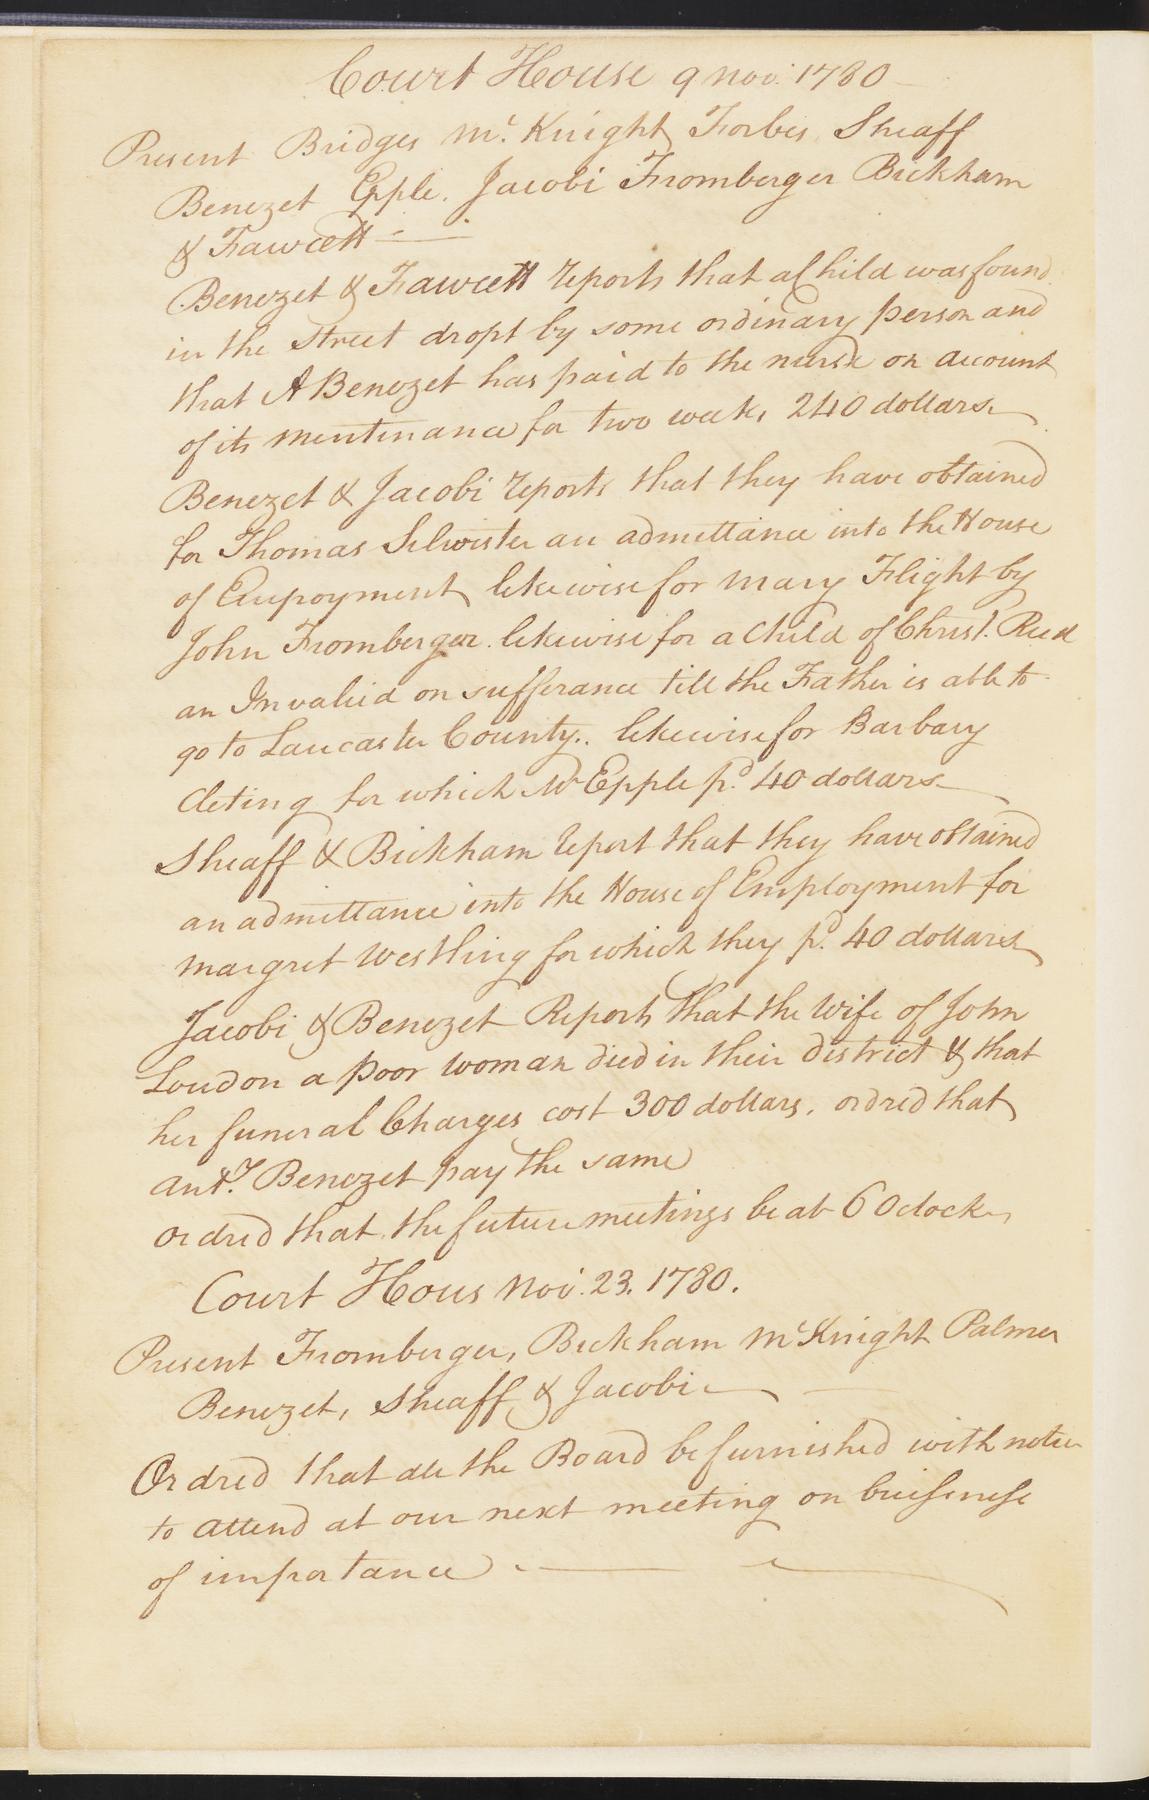 Court House 9 Nov. 1780
Present Bridges Mc. Knight Forbes Sheaff
Benezet Epple. Jacobi Fromberger Bickham
& Fawcett
Benezet & Fawcett reports that a Child was found
in the street dropt by some ordinary person and
that A Benezet has paid to the nurse on account
of its mentinance for two weeks 240 dollars
Benezet & Jacobi reports that they have obtained
for Thomas Silwister an admittance into the House
of Empoyment likewise for Mary Flight by
John Fromberger. likewise for a Child of Christ. Reed
an Invalid on sufferance till the Father is able to
go to Lancaster County.. likewise for Barbary
Cleting for which Mr Epple pd. 40 dollars
Sheaff & Bickham report that they have obtained
an admittance into the House of Employment for
Margret Westling for which they pd. 40 dollars
Jacobi & Benezet Reports that the Wife of John
Loudon a poor woman died in their district & that
her funeral Charges cost 300 dollars. ordred that
Anty. Benezet pay the same
Ordred that the future meetings be at 6 Oclock
Court Hous Nov. 23. 1780.
Present Fromberger, Bickham McKnight Palmer
Benezet, Sheaff & Jacobi
Ordred that all the Board be furnished with notice
to attend at our next meeting on buiseness
of importance